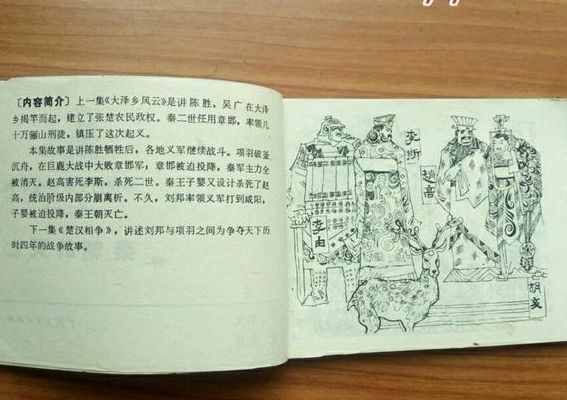 〔内容简介〕上一集《大泽乡风云》是讲陈胜、吴广在大泽
乡揭竿而起，建立了张楚农民政权。秦二世任用章邯，率领几
十万骊山刑徒，镇压了这次起义。
本集故事是讲陈胜牺牲后，各地义军继续战斗。项羽破釜
沉舟，在巨鹿大战中大败章邯军，章邯被迫投降，秦军主力全
被消灭。赵高害死李斯，杀死二世。秦王子婴又设计杀死了赵
高，统治阶级内部分崩离析。不久，刘邦率领义军打到咸阳，
子婴被迫投降，秦王朝灭亡。
下一集《楚汉相争》，讲述刘邦与项羽之间为争夺天下历
时四年的战争故事。
李斯
赵高
李由
胡亥